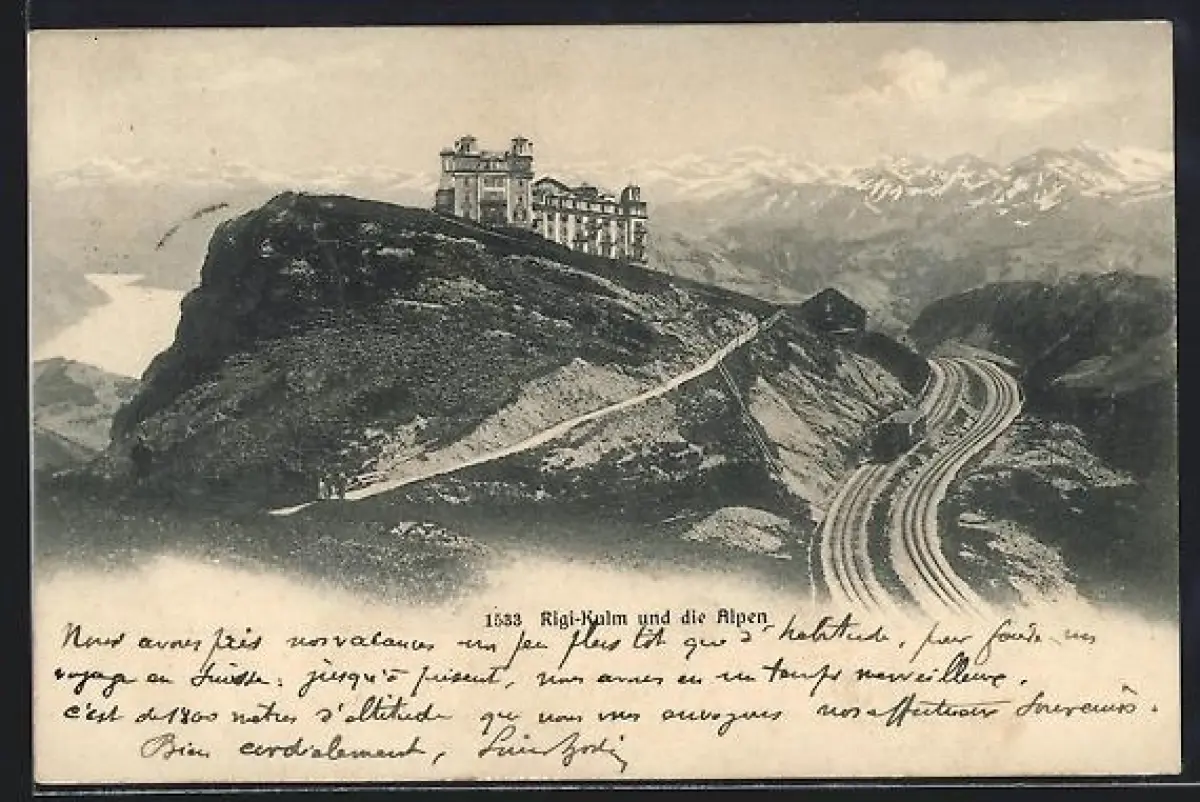 1533 Rigi-Kulm und die Alpen
Nous avons pris nos vacances un peu plus tôt que d'habitude, pour faire un
voyage en Suisse; jusqu'à présent, nous avons eu un temps merveilleux.
c'est de 1800 mètres d'altitude que nous vous envoyons nos affectueux souvenirs.
Bien cordialement,